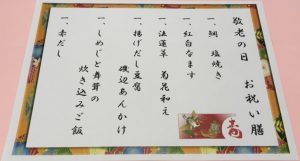 敬老の日　お祝い膳
一、鯛　塩焼き
一、紅白なます
一、法蓮草　菊花和え
一、揚げだし豆腐
磯辺あんかけ
一、しめじと舞茸の
炊き込みご飯
一、赤だし
寿